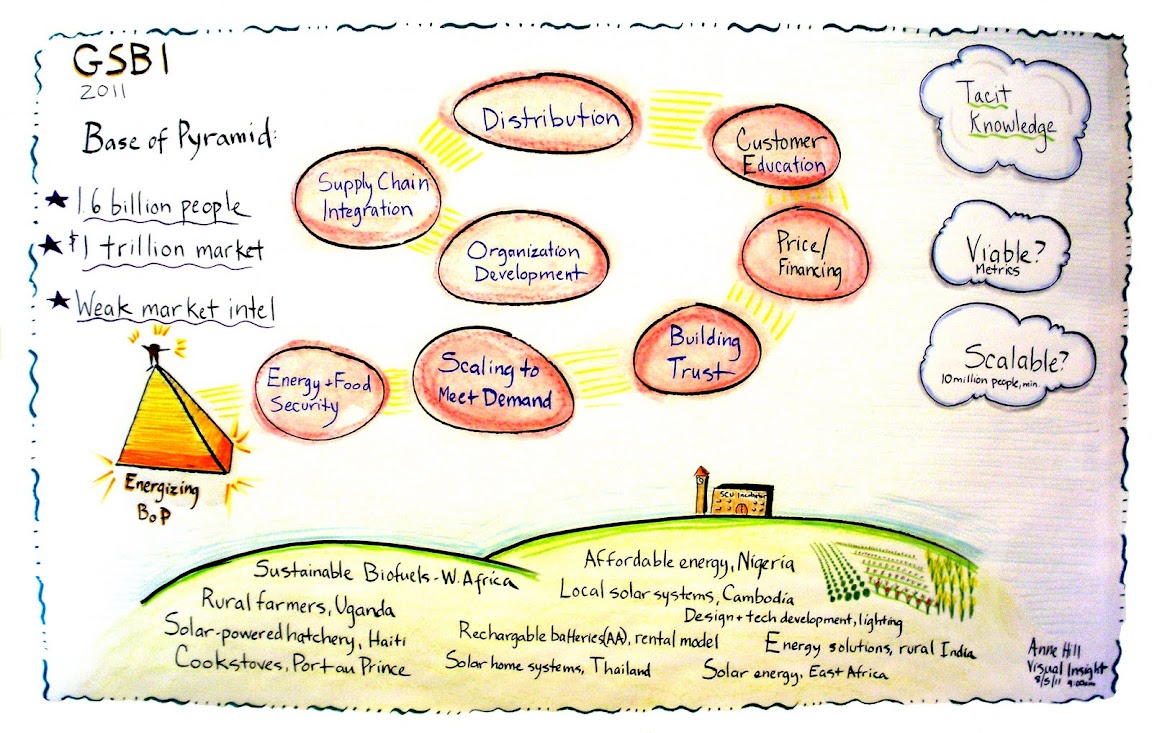 GSBI
2011
Base of Pyramid:
1.6 billion people
$1 trillion market
Weak market intel
Energizing
BoP
Energy + Food
Security
Scaling to
Meet Demand
Building
Trust
Price/
Financing
Customer
Education
Distribution
Supply Chain
Integration
Organization
Development
Tacit
Knowledge
Viable?
Metrics
Scalable?
10 million people, min.
SCU Incubator
Sustainable Biofuels - W. Africa
Rural farmers, Uganda
Solar-powered hatchery, Haiti
Cookstoves, Port au Prince
Affordable energy, Nigeria
Local solar systems, Cambodia
Design + tech development, lighting
Rechargable batteries (AA), rental model
Energy solutions, rural India
Solar home systems, Thailand
Solar energy, East Africa
Anne Hill
Visual Insight
8/5/11 9:00am